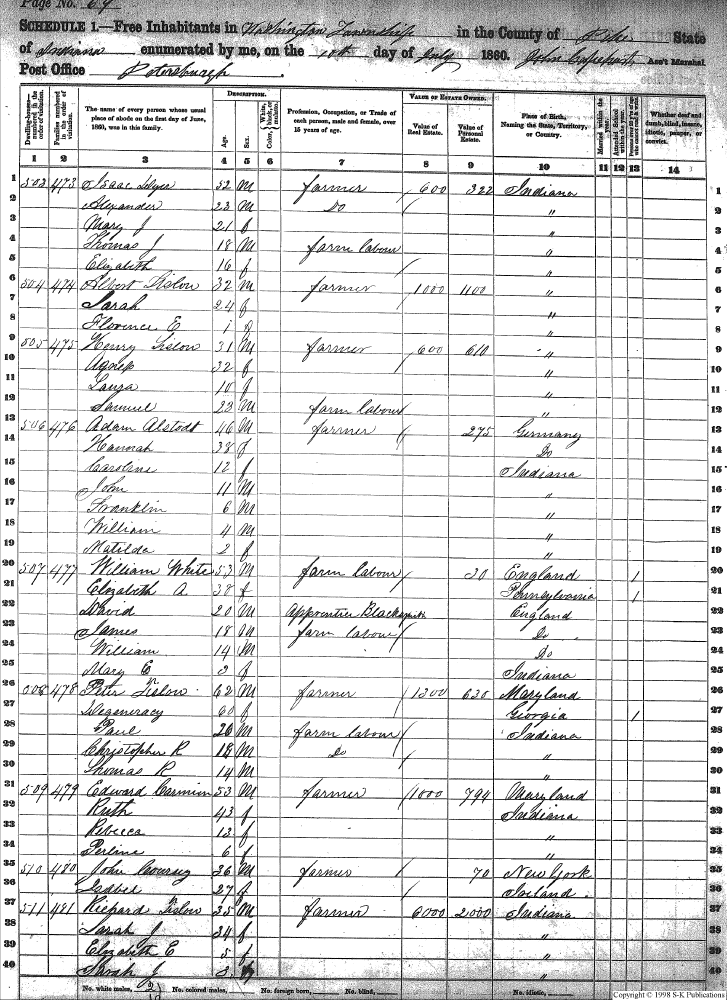 Page No. 69
SCHEDULE 1.—Free Inhabitants in Washington Township in the County of Pike State
of Indiana enumerated by me, on the 10th day of July 1860. John Ass't Marshal
Post Office Petersburgh
Dwelling-houses numbered in the order of visitation. Families numbered in the order of visitation. The name of every person whose usual place of abode on the first day of June, 1860, was in this family. DESCRIPTION. Age. Sex. Color, White, black, or mulatto. Profession, Occupation, or Trade of each person, male and female, over 15 years of age. VALUE OF ESTATE OWNED. Value of Real Estate. Value of Personal Estate. Place of Birth, Naming the State, Territory, or Country. Married within the year. Attended School within the year. Whether deaf and dumb, blind, insane, idiotic, pauper, or convict.
1 2 3 4 5 6 7 8 9 10 11 12 13 14
1 503 473 Isaac 52 M farmer 600 322 Indiana 1
2 Alexander 23 M Do " 2
3 Mary J 21 f " 3
4 Thomas J 18 M farm labour " 4
5 Elizabeth 16 f " 5
6 504 474 Albert Sislow 32 M farmer 1000 1100 " 6
7 Sarah 24 f " 7
8 Florence E 1 f " 8
9 505 475 Henry Sislow 31 M farmer 600 610 " 9
10 Agness 32 f " 10
11 Laura 10 f " 11
12 Samuel 23 M farm labour " 12
13 506 476 Adam Alstodt 46 M farmer 275 Germany 13
14 Hannah 38 f Do 14
15 Caroline 12 f Indiana 15
16 John 11 M " 16
17 Franklin 6 M " 17
18 William 4 M " 18
19 Matilda 2 f " 19
20 507 477 William White 53 M farm labour 30 England 1 20
21 Elizabeth A 38 f Pennsylvania 1 21
22 David 20 M Apprentice Blacksmith England 22
23 James 18 M farm labour Do 23
24 William 14 M Do 24
25 Mary E 3 f Indiana 25
26 508 478 Peter Sislow 62 M farmer 1300 630 Maryland 26
27 Degeneracy 60 f Georgia 1 27
28 Paul 20 M farm labour Indiana 28
29 Christopher R 18 M Do " 29
30 Thomas R 14 M " 30
31 509 479 Edward Carmien 53 M farmer 1000 794 Maryland 31
32 Ruth 43 f Indiana 32
33 Rebecca 13 f " 33
34 Perline 6 f " 34
35 510 480 John 36 M farmer 70 New York 35
36 Isabel 27 f Ireland 36
37 511 481 Richard Sislow 35 M farmer 6000 2000 Indiana 37
38 Sarah J 34 f " 38
39 Elizabeth E 5 f " 39
40 Sarah J 3 f " 40
No. white males, 21 No. colored males, No. foreign born, No. blind, No. idiotic,
Copyright © 1998 S-K Publications